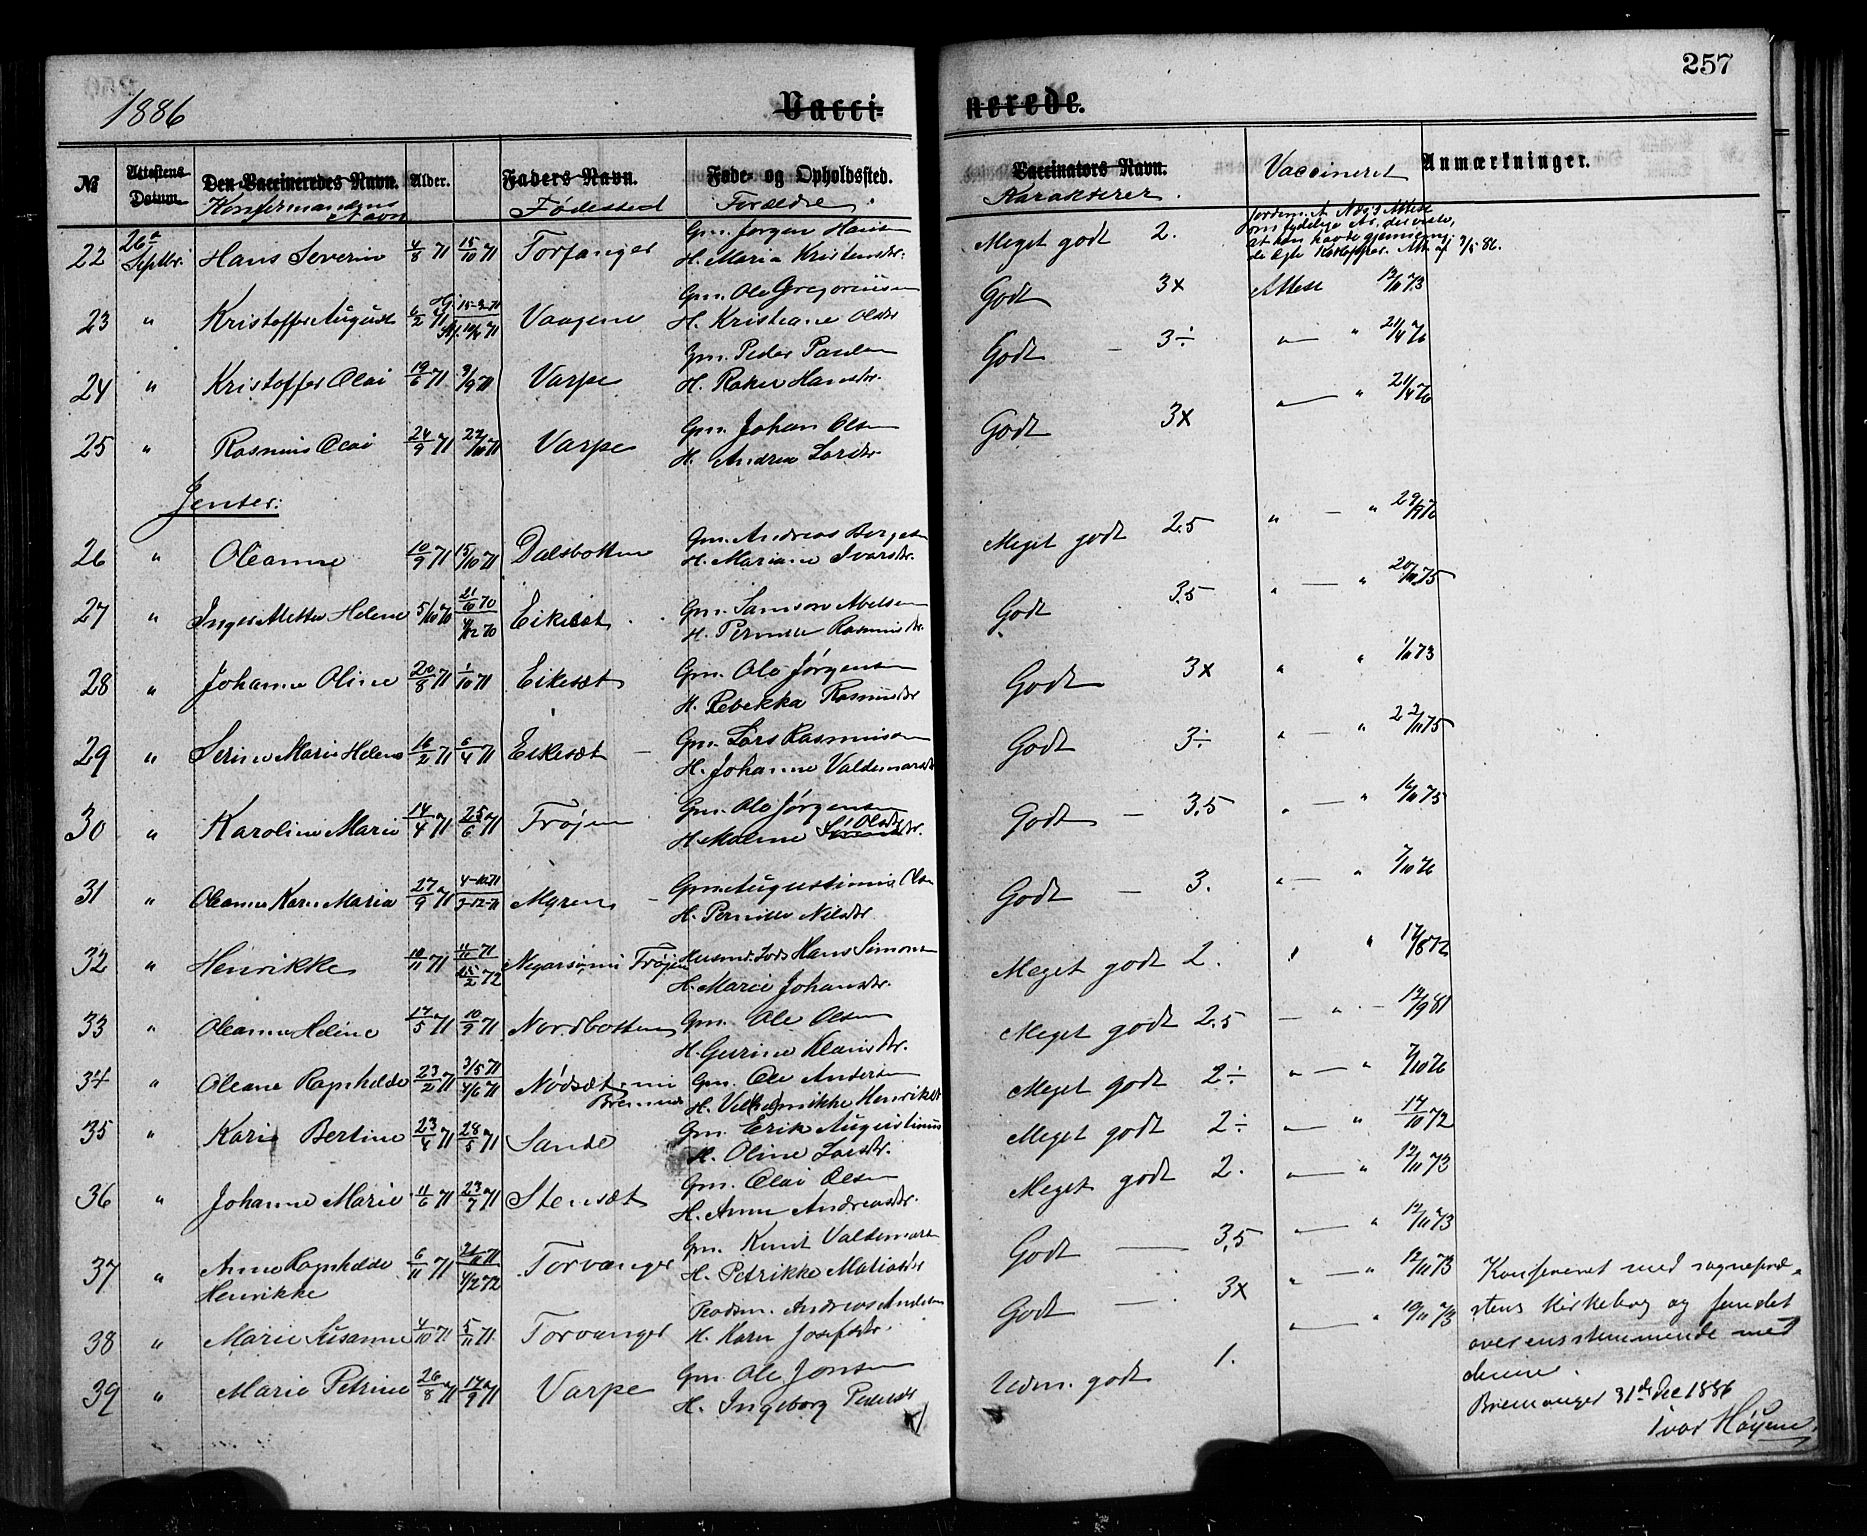 257
1886
Vaccinerede.
№ Attestens Datum. Den Vaccineredes Navn. Alder. Faders Navn. Føde- og Opholdssted. Vaccinators Navn. Vaccineret Anmærkninger.
Konfirmandens Navn Fødested Forældre Karakterer.
22 26de Septbr. Hans Severin 4/8 71 15/10 71 Torfanger Gm. Jørgen Hansen
H. Maria Kristensdr. Meget godt 2.
23 " Kristoffer August 6/2 71 Vaagene Gm. Ole Gregoriusen
H. Kristiane Olsdr. Godt 3x Attest 12/11 73
24 " Kristoffer Olai 19/6 71 3/9 71 Varpe Gm. Peder Paulsen
H. Rakel Hansdr. Godt - 3÷ " — " 21/4 76
25 " Rasmus Olai 24/9 71 22/10 71 Varpe Gm. Johan Olsen
H. Andrea Larsdr. Godt 3x " — " 21/4 76
Jenter:
26 " Oleanne 10/9 71 15/10 71 Dalsbotten Gm. Andreas Børgesen
H. Mariane Ivarsdr. Meget godt 2.5 " — "
27 " Inger Mette Helene 5/10 70 4/12 70 Eikesæt Gm. Samson Abelsen
H. Pernille Rasmusdr. Godt 3.5 " — "
28 " Johanne Oline 20/8 71 1/10 71 Eikesæt Gm. Ole Jørgensen
H. Rebekka Rasmusdr. Godt 3x " " 1/11 73
29 " Serine Marie Helene 16/2 71 6/4 71 Eikesæt Gm. Lars Rasmusen
H. Johanne Valdemarsdr. Godt 3÷ " — " 22/11 75
30 " Karoline Marie 14/4 71 25/6 71 Frøjen Gm. Ole Jørgensen
H. Malene Olsdr. Godt — 3.5 " — "
31 " Oleanne Karn Maria 27/9 71 4-10 71
3-12-71 Myren Gm. Augustinus Olsen
H. Pernille Nilsdr. Godt — 3. " — " 7/10 76
32 " Henrikke 10/11 71 11/11 71
15/2 72 Frøjen Hans Simonsen
H. Marie Johansdr. Meget godt 2. " " 17/8 72
33 " Oleanne Heline 17/5 71 10/9 71 Nordbotten Gm. Ole Olsen
H. Gurine Klausdr. Meget godt 2.5 — " — 12/9 81
34 " Oleane Ragnhilde 23/2 71 3/5 71
4/6 71 Nødsæt Gm. Ole Andersen
H. Vilhelmikke Henriksdr. Meget godt 2÷ " — " 7/10 76
35 " Kari Bertine 23/4 71 28/5 71 Sande Gm. Erik Augustinus
H. Oline Larsdr. Meget godt 2÷ " — " 17/10 72
36 " Johanne Marie 11/6 71 23/7 71 Stensæt Gm. Olai Olsen
H. Anne Andreasdr. Meget godt 2. " — " 12/11 73
37 " Anne Ragnhilde
Henrikke 6/11 71 4/2 72 Torvanger Gm. Knut Valdemarsen
H. Petrikke Matiasdr. Godt — 3.5 " — " 12/11 73
38 " Marie Susanne 4/10 71 5/11 71. Torvanger Andreas Andersen
H. Karn Josefsdr. Godt — 3x " — " 12/11 73
39 " Marie Petrine 26/8 71 17/9 71 Varpe Gm. Ole Jonsen
H. Ingeborg Pedersdr. Udm. godt 1. " — "
Konfereret med sogneprestens
Kirkebog og fundet
overensstemmende med
denne.
Bremanger 31te Dec 1886
Ivar Høyem